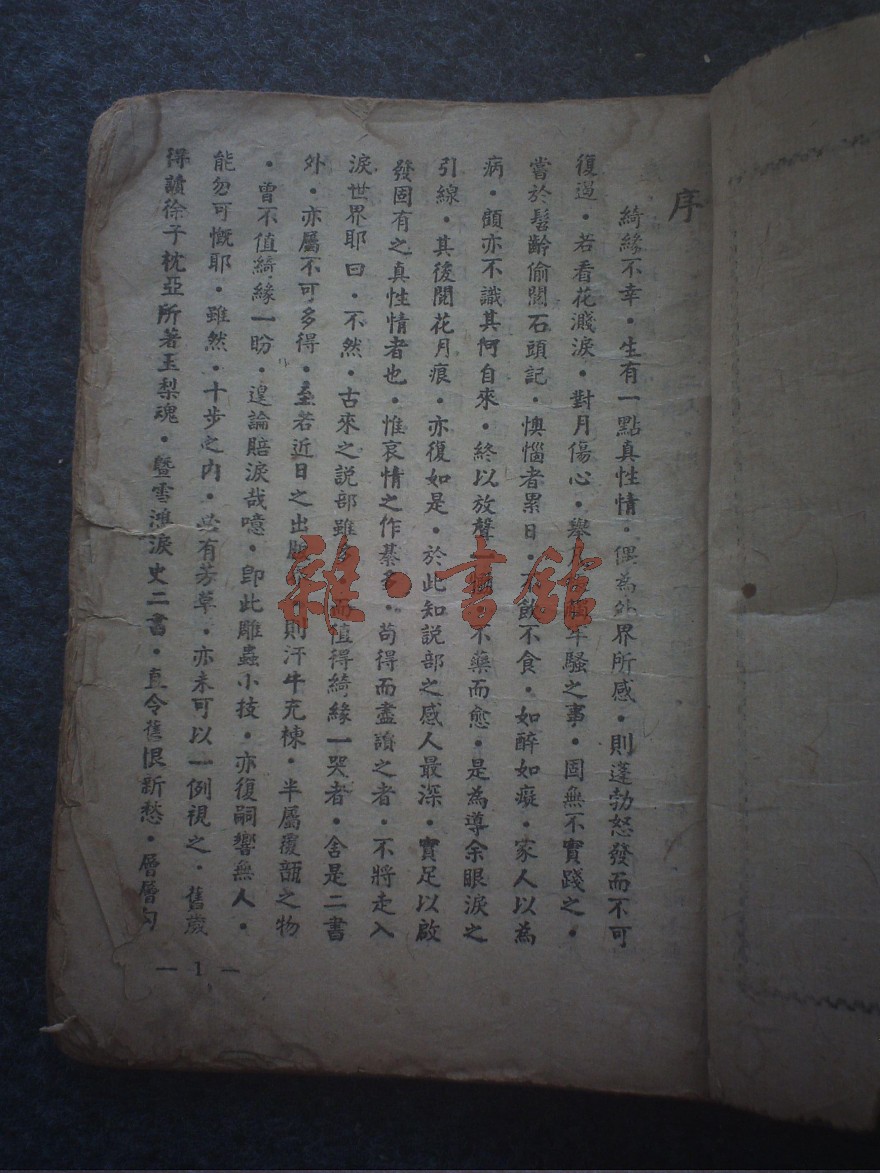 序
綺緣不幸•生有一點真性情•偶為外界所感•則蓬勃怒發而不可
復遏•若看花濺淚•對月傷心•舉騷之事•固無不實踐之•
當於髫齡偷閱石頭記•懊惱者累日•不飲不食•如醉如癡•家人以為
病•顧亦不識其何自來•終以放聲不藥而愈•是為導余眼淚之
引線•其後閱花月痕•亦復如是•於此知説部之感人最深•實足以啟
發固有之真性情者也•惟哀情之作綦多•苟得而盡讀之者•不將走入
淚世界耶曰•不然•古來之説部雖多•而值得綺緣一哭者•舍是二書
外•亦屬不可多得•至若近日之出版則汗牛充棟•半屬覆瓿之物
•曾不值綺緣一盼•遑論賠淚哉噫•即此雕蟲小技•亦復嗣響無人•
能勿可慨耶•雖然•十步之内•必有芳草•亦未可以一例視之•舊歲
得讀徐子枕亞所著玉梨魂•暨雪鴻淚史二書•直令舊恨新愁•層層勾
— 1 —
雜•書館